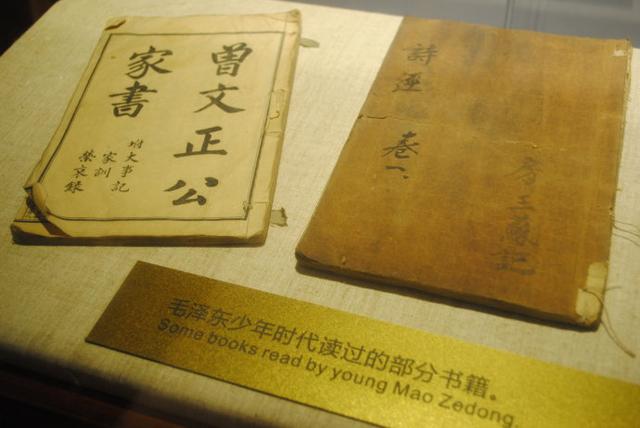 曾文正公
家書
附大事記
家訓
榮哀錄
詩經
卷一
毛泽东少年时代读过的部分书籍。
Some books read by young Mao Zedong.